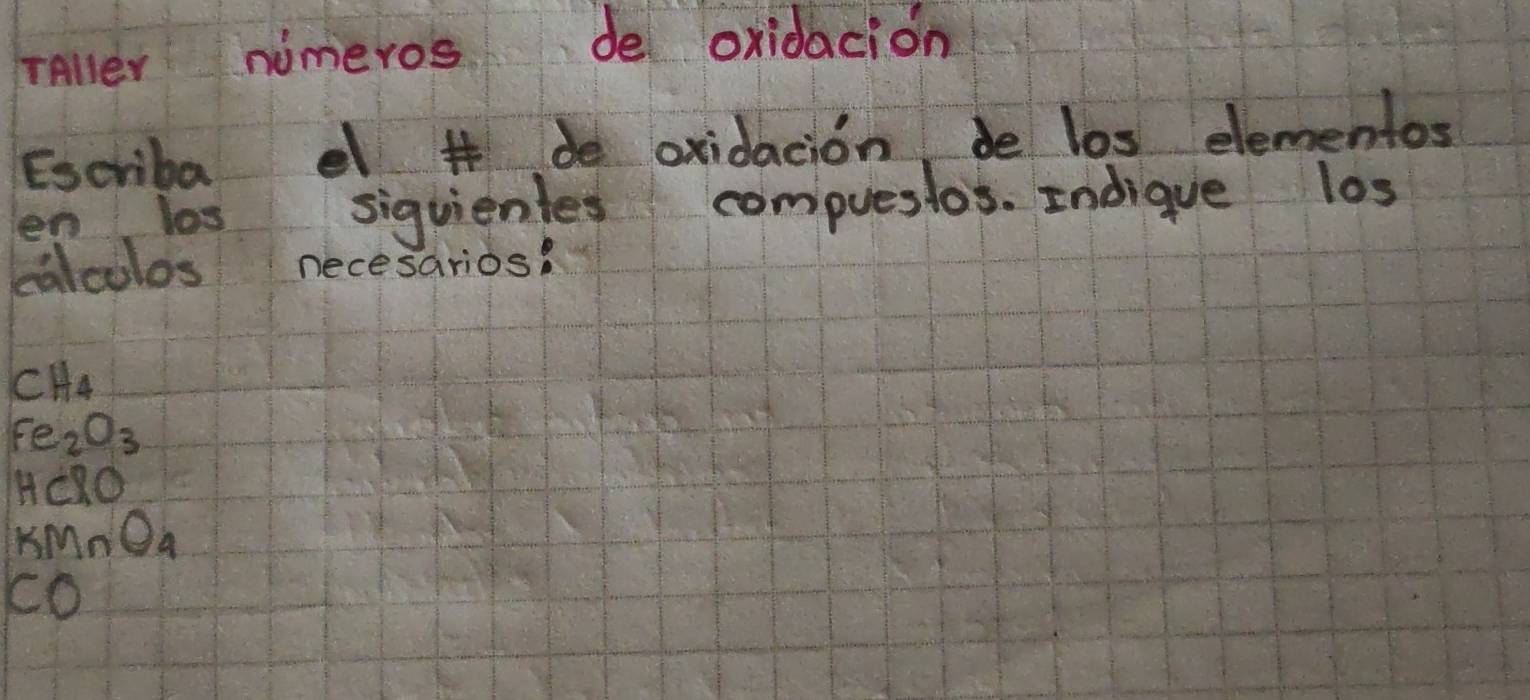 TAller números de oxidación
Escriba el # de oxidación de los elementos
en los siguientes compuestos. Indique los
cálculos necesarios:
CH4
Fe2O3
HClO
KMnO4
CO